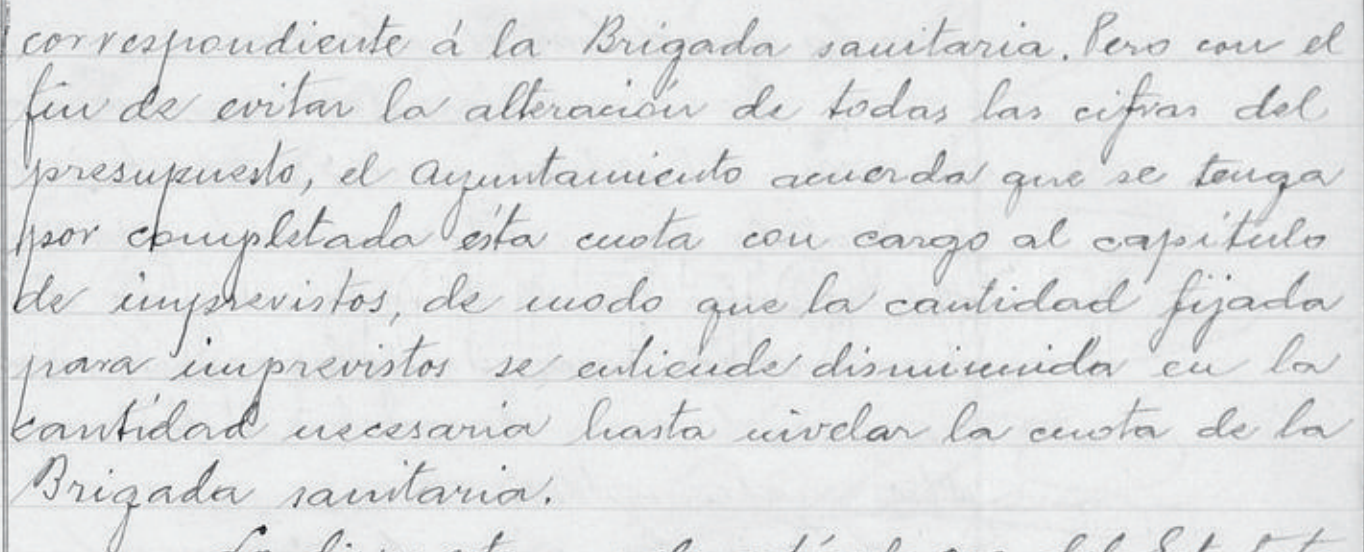 correspondiente á la Brigada sanitaria. Pero con el
fin de evitar la alteración de todas las cifras del
presupuesto, el Ayuntamiento acuerda que se tenga
por completada ésta cuota con cargo al capítulo
de imprevistos, de modo que la cantidad fijada
para imprevistos se entiende disminuida en la
cantidad necesaria hasta nivelar la cuota de la
Brigada sanitaria.